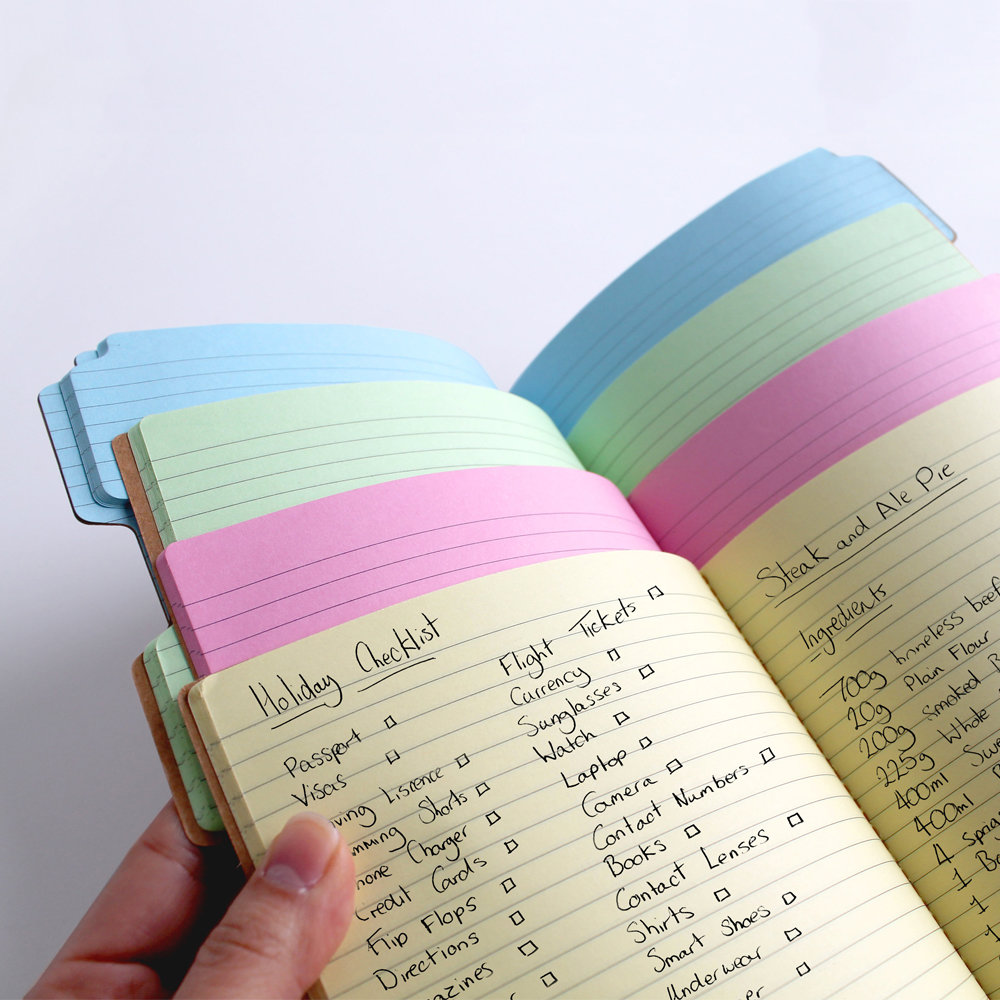 Holiday Checklist
Passport
Visas
ving Liscence
mming Shorts
hone Charger
Credit Cards
Flip Flops
Directions
azines
Flight Tickets
Currency
Sunglasses
Watch
Laptop
Camera
Contact Numbers
Books
Contact Lenses
Shirts
Smart Shoes
Underwear
Steak and Ale Pie
Ingredients
700g boneless beef
20g Plain Flour
200g Smoked
225g Whole
400ml
400ml
4
1
1
1